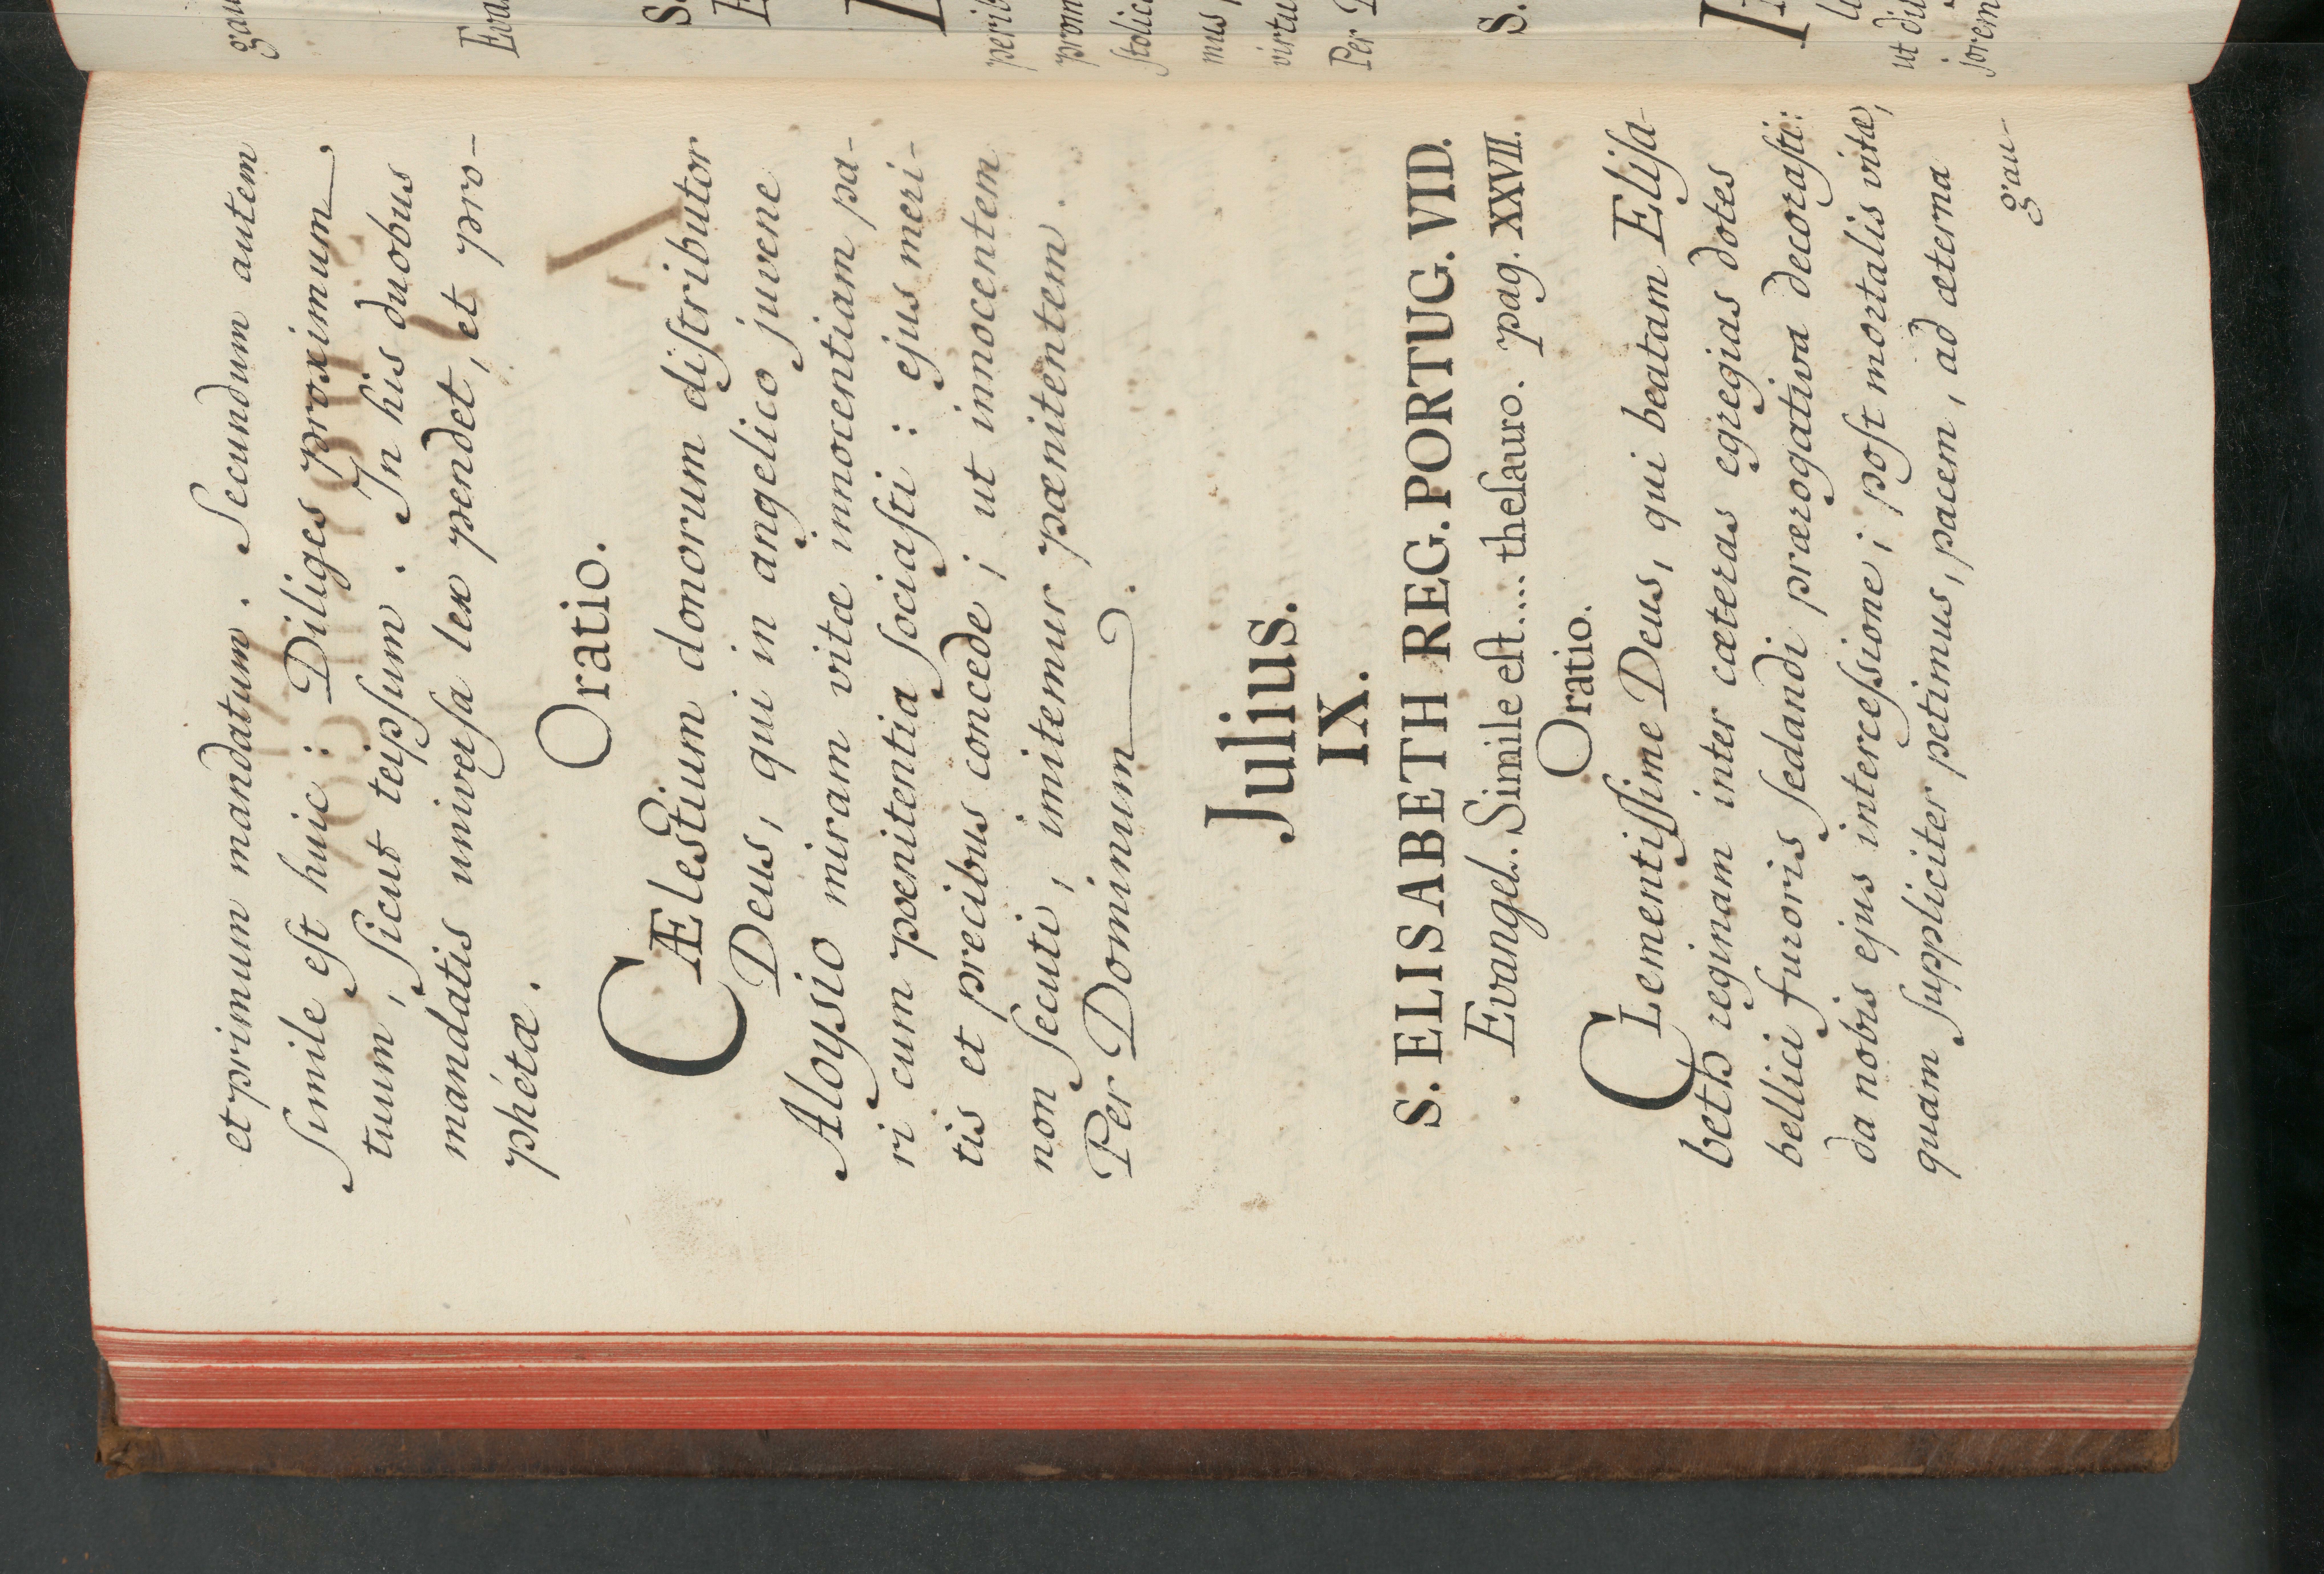 et primum mandatum. Secundum autem
ſimile eſt huic: Diliges proximum
tuum, ſicut teipſum. In his duobus
mandatis univerſa lex pendet, et pro-
phétæ.
Oratio.
CÆlestium donorum diſtributor
Deus, qui in angelico juvene
Aloysio miram vitæ innocentiam pa-
ri cum pœnitentia ſociaſti: ejus meri-
tis et precibus concede; ut innocentem
non ſecuti, imitemur pænitentem.
Per Dominum.
Julius.
IX.
S. ELISABETH REG. PORTUG. VID.
Evangel. Simile eſt.... theſauro. pag. XXVII.
Oratio.
CLementiſſime Deus, qui beatam Eliſa-
beth reginam inter cæteras egregias dotes
bellici furoris ſedandi prærogativa decoraſti:
da nobis ejus interceſsione; poſt mortalis vitæ,
quam ſuppliciter petimus, pacem, ad æterna
gau-
gau
Eva
S.
E
perib
prom
ſtolic
mus
virtu
Per D
S.
ut di
ſorem